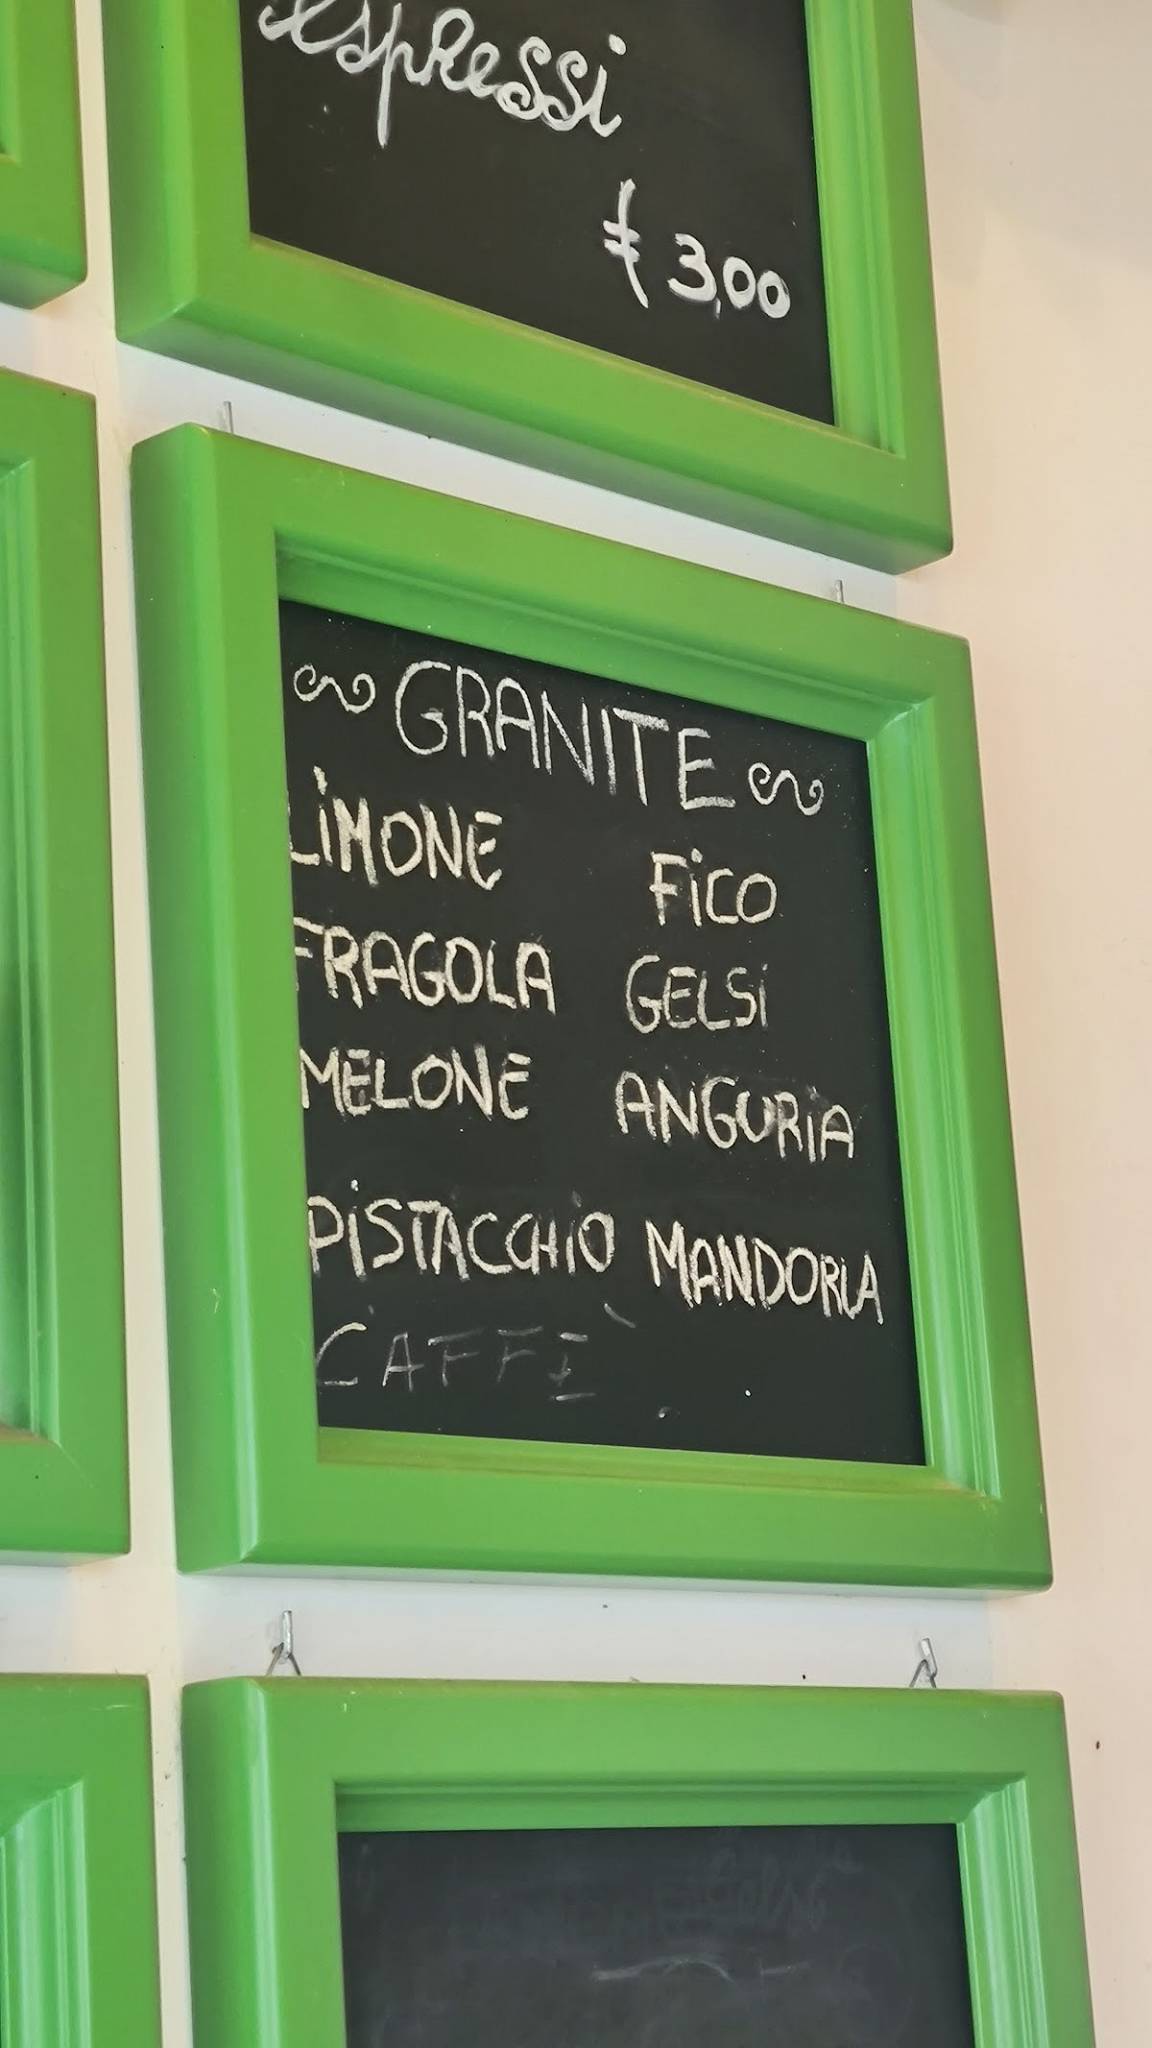 espressi
€ 3,00
GRANITE
LIMONE FICO
FRAGOLA GELSI
MELONE ANGURIA
PISTACCHIO MANDORLA
CAFFÈ